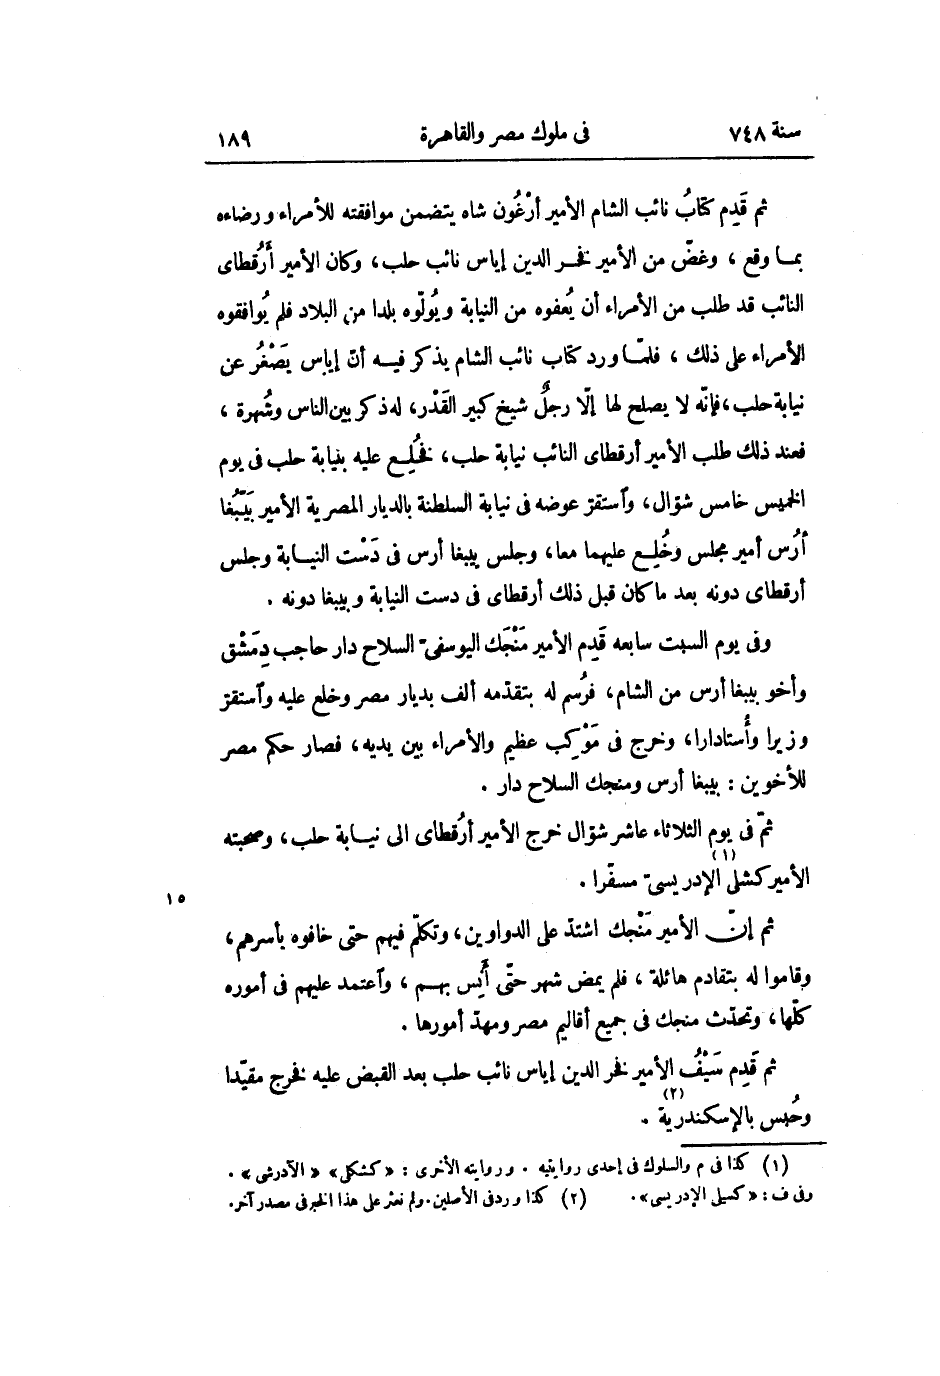 سنة ٧٤٨ فى ملوك مصر والقاهرة ١٨٩
ثم قَدِم كتابُ نائب الشام الأمير أَرْغُون شاه يتضمن موافقته للأمراء ورضاءه
بما وقع ، وغضّ من الأمير فخر الدين إياس نائب حلب، وكان الأمير أَرُقْطاى
النائب قد طلب من الأمراء أن يُعفوه من النيابة ويُولّوه بلدا من البلاد فلم يُوافقوه
الأمراء على ذلك ، فلمّا ورد كتاب نائب الشام يذكر فيه أنّ إياس يَصْغُر عن
نيابة حلب، فإنّه لا يصلح لها إلّا رجلٌ شيخ كبير القَدْر، له ذكر بين الناس وشُهرة ،
فعند ذلك طلب الأمير أرقطاى النائب نيابة حلب، فخُلِع عليه بنيابة حلب فى يوم
الخميس خامس شوّال، وٱستقرّ عوضه فى نيابة السلطنة بالديار المصرية الأمير بَيْبُغَا
أُرُس أمير مجلس وخُلِع عليهما معا، وجلس بيبغا أرس فى دَسْت النيابة وجلس
أرقطاى دونه بعد ما كان قبل ذلك أرقطاى فى دست النيابة وبيبغا دونه .
وفى يوم السبت سابعه قَدِم الأمير مَنْجَك اليوسفىّ السلاح دار حاجب دِمَشْق
وأخو بيبغا أرس من الشام، فرُسم له بتقدمه ألف بديار مصر وخلع عليه وٱستقرّ
وزيرا وأُستادارا، وخرج فى مَوْكِب عظيم والأمراء بين يديه، فصار حكم مصر
للأخوين : بيبغا أرس ومنجك السلاح دار .
ثمّ فى يوم الثلاثاء عاشر شوّال خرج الأمير أَرُقطاى الى نيابة حلب، وصحبته
الأمير كشلى الإدريسىّ (١) مسفّرا .
١٥
ثم إنّ الأمير مَنْجك اشتدّ على الدواوين، وتكلّم فيهم حتى خافوه بأسرهم،
وقاموا له بتقادم هائلة ، فلم يمض شهر حتّى أَنِس بهم ، وٱعتمد عليهم فى أموره
كلّها، وتحدّث منجك فى جميع أقاليم مصر ومهدّ أمورها .
ثم قَدِم سَيْفُ الأمير فخر الدين إياس نائب حلب بعد القبض عليه فخرج مقيّدا
وحُبس بالإسكندرية (٢) .
(١) كذا فى م والسلوك فى إحدى روايتيه . وروايته الأخرى : «كشكلى» «الآدرشى» .
وفى ف : «كسيلى الإدريسى». (٢) كذا ورد فى الأصلين. ولم نعثر على هذا الخبر فى مصدر آخر.